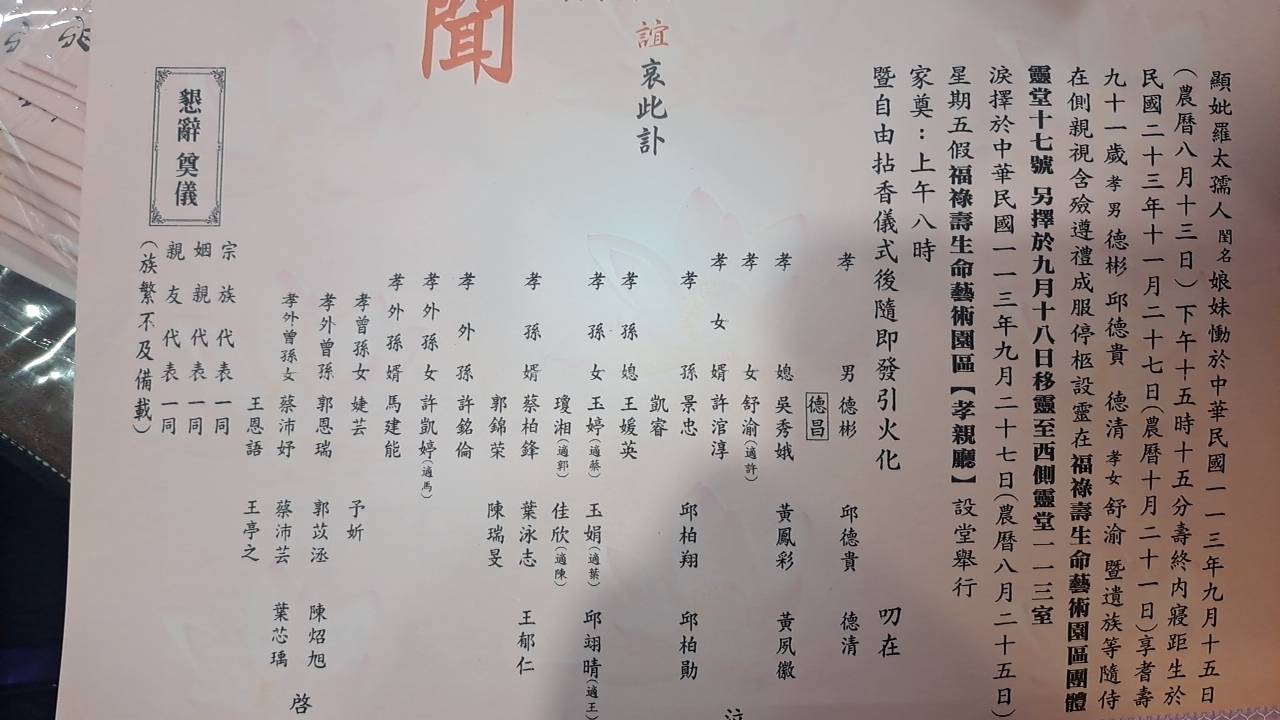 顯妣羅太孺人 閨名 娘妹慟於中華民國一一三年九月十五日
(農曆八月十三日)下午十五時十五分壽終內寢距生於
民國二十三年十一月二十七日(農曆十月二十一日)享耆壽
九十一歲 孝男 德彬 邱德貴 德清 孝女 舒渝 暨遺族等隨侍
在側親視含殮遵禮成服停柩設靈在福祿壽生命藝術園區團體
靈堂十七號 另擇於九月十八日移靈至西側靈堂一一三室
淚擇於中華民國一一三年九月二十七日(農曆八月二十五日)
星期五假福祿壽生命藝術園區【孝親廳】設堂舉行
家奠:上午八時
暨自由拈香儀式後隨即發引火化
叨在
孝男 德彬 邱德貴 德清
德昌
孝媳 吳秀娥 黃鳳彩 黃夙徽
孝女 舒渝(適許)
孝女婿 許涫淳
孝孫 景忠 邱柏翔 邱柏勛
凱睿
孝孫媳 王媛英
孝孫女 玉婷(適蔡) 玉娟(適葉) 邱翊晴(適王)
瓊湘(適郭) 佳欣(適陳)
孝孫婿 蔡柏鋒 葉泳志 王郁仁
郭錦榮 陳瑞旻
孝外孫 許銘倫
孝外孫女 許凱婷(適馬)
孝外孫婿 馬建能
孝曾孫女 婕芸 予妡
孝外曾孫 郭恩瑞 郭苡丞 陳炤旭
孝外曾孫女 蔡沛妤 蔡沛芸 葉芯瑀
王恩語 王亭之
泣
啓
誼
哀此訃
聞
宗族代表一同
姻親代表一同
親友代表一同
(族繁不及備載)
懇辭 奠儀